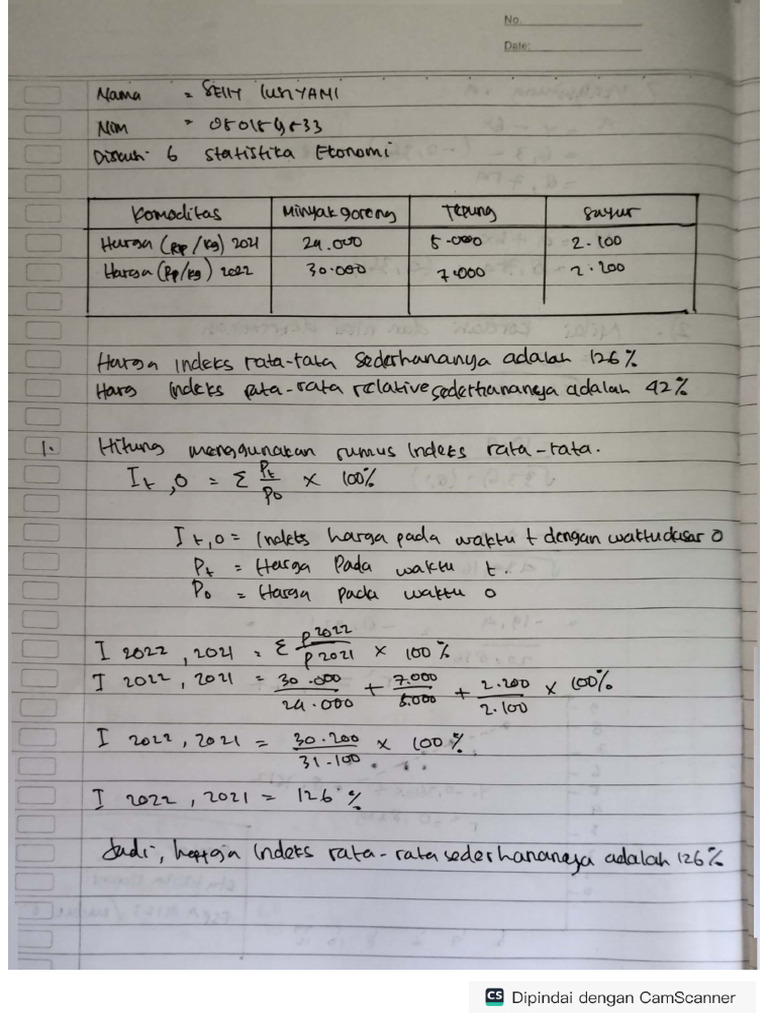 No.
Date:
Nama =
Nim =
Diskusi 6 Statistika Ekonomi
Komoditas Minyak goreng Tepung Sayur
Harga (Rp/kg) 2021 24.000 5.000 2.100
Harga (Rp/kg) 2022 30.000 7.000 2.200
Harga indeks rata-rata Sederhananya adalah 126%
Harg indeks rata-rata relative sederhananya adalah 42%
1. Hitung menggunakan rumus Indeks rata-rata.
It,0 = Σ Pt/Po × 100%
It,0 = Indeks harga pada waktu t dengan waktu dasar 0
Pt = Harga Pada waktu t.
Po = Harga pada waktu 0
I 2022, 2021 = Σ P2022/P2021 × 100%
I 2022, 2021 = 30.000/24.000 + 7.000/5.000 + 2.200/2.100 × 100%
I 2022, 2021 = 30.200/31.100 × 100%
I 2022, 2021 = 126%
Jadi, harga Indeks rata-rata sederhananya adalah 126%
CS Dipindai dengan CamScanner